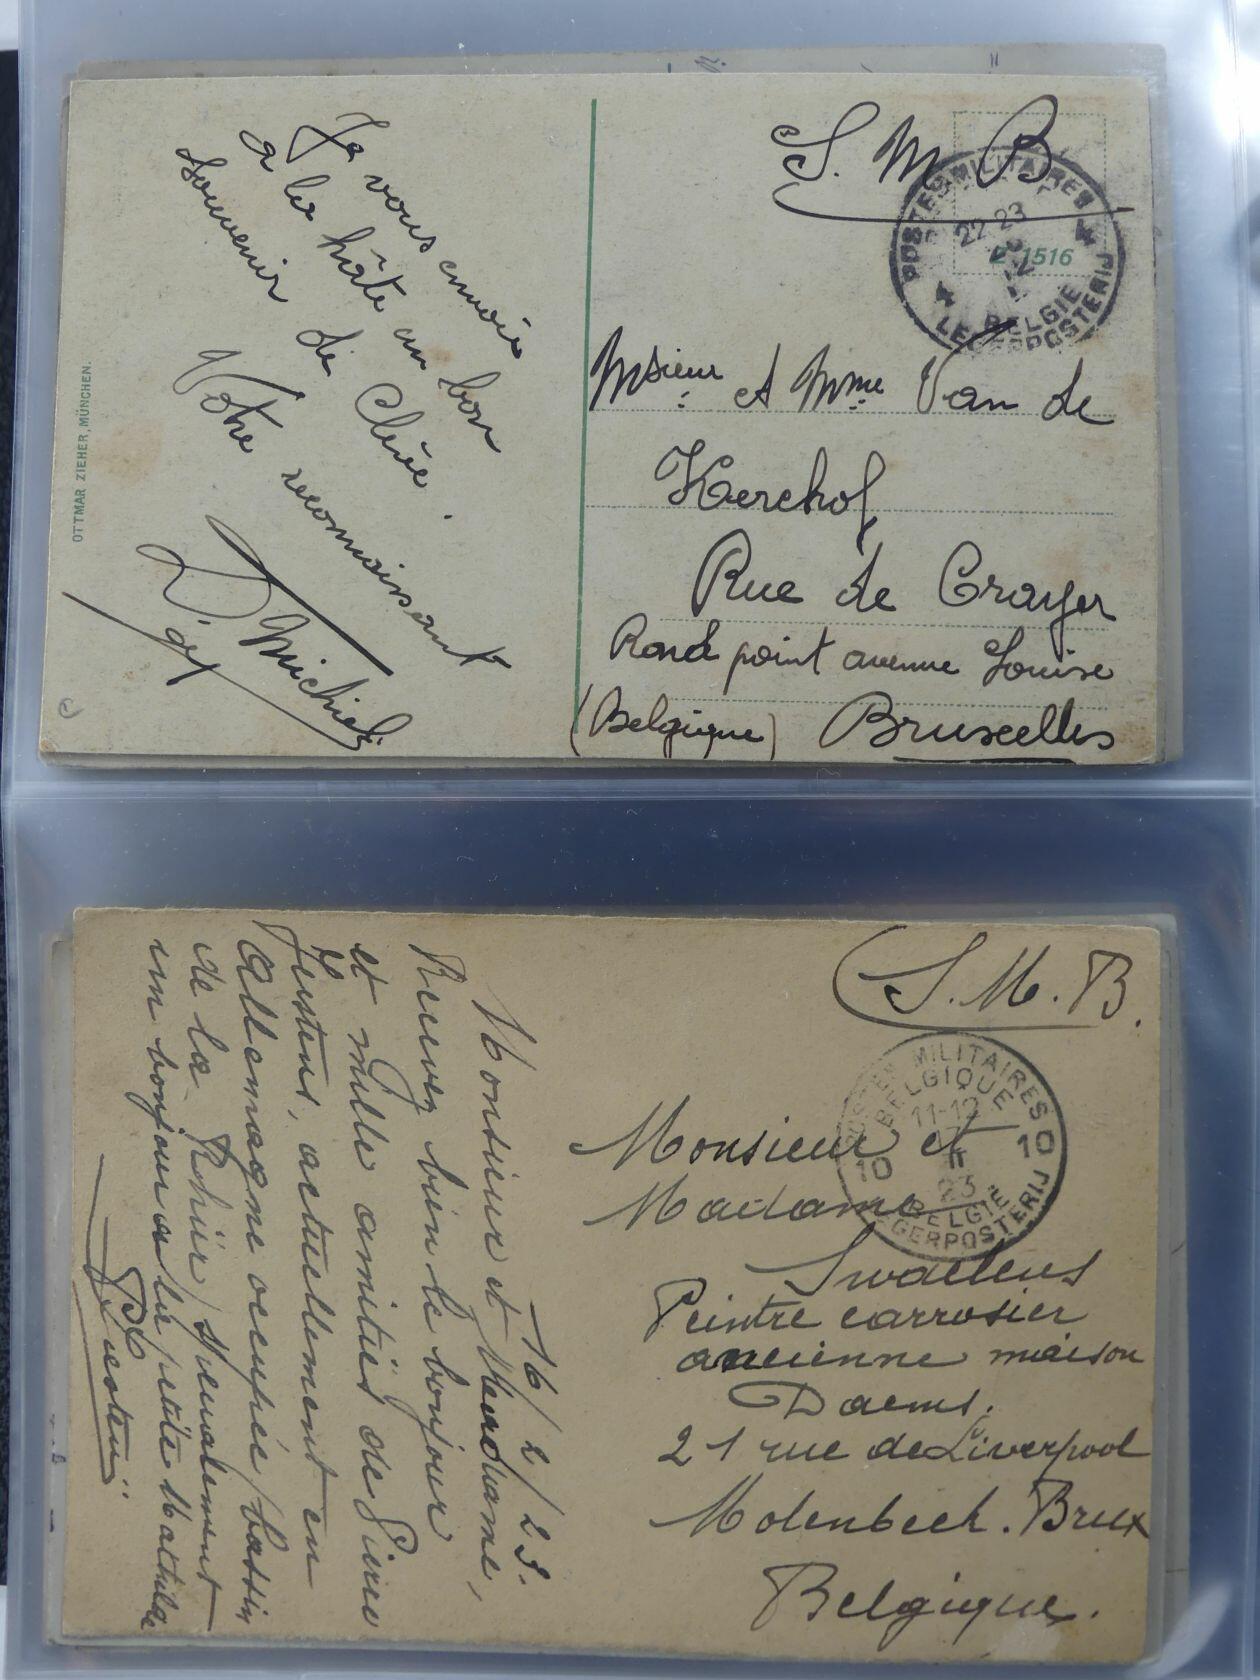 Je vous envoie
a la hâte un bon
souvenir de Clève.
Votre reconnaissant
Michiels
OTTMAR ZIEHER, MÜNCHEN.
S. M. B
POSTES MILITAIRES
22-23
BELGIE
LEGERPOSTERIJ
1516
Msieur et Mme Van de
Kerchof
Rue de Crayer
Rond point avenue Louise
(Belgique) Bruxelles
16/2/23.
Monsieur et Madame,
Recevez bien le bonjour
et mille amitiés de
actuellement en
Allemagne occupée bassin
de la Rhür
un bonjour a la petite Mathilde
S. M. B.
POSTES MILITAIRES
BELGIQUE
11-12
II
23
10 10
BELGIE
LEGERPOSTERIJ
Monsieur et
Madame
Swaelens
Peintre carrosier
ancienne maison
Daems.
21 rue de Liverpool
Molenbeek. Brux
Belgique.